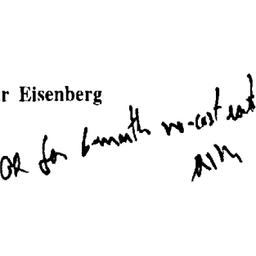 r Eisenberg
OK for 6-month no-cost ext